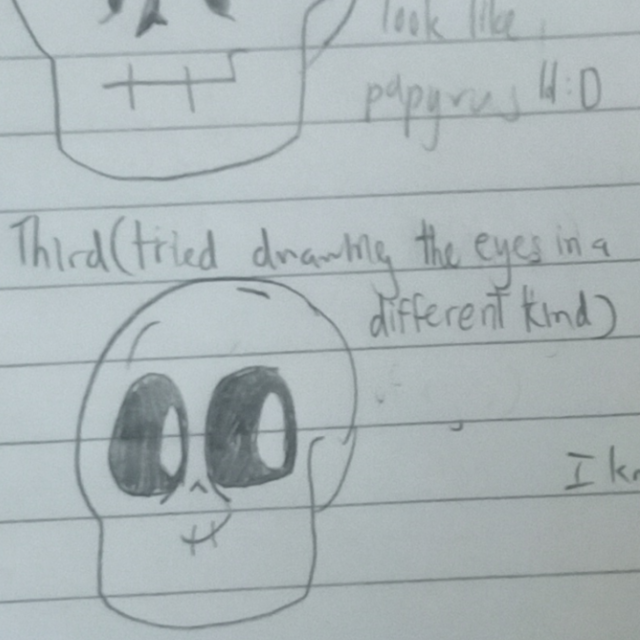 look like
papyrus 4:0
Third(tried drawing the eyes in a
different kind)
I